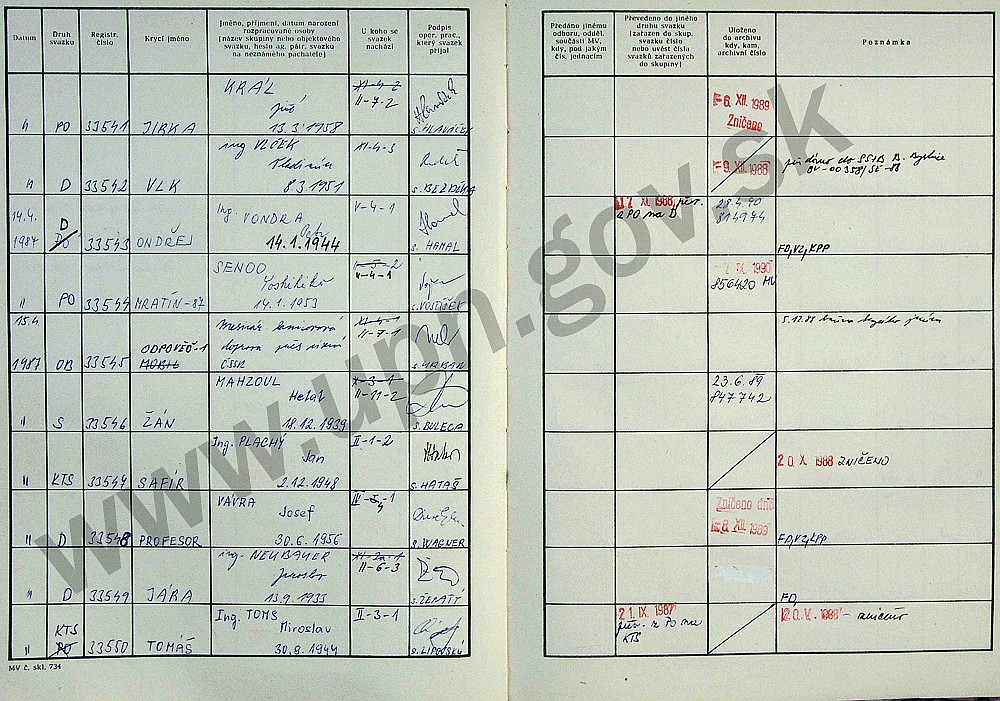 Datum
Druh svazku
Registr. číslo
Krycí jméno
Jméno, příjmení, datum narození
rozpracované osoby
(název skupiny nebo objektového
svazku, heslo ag. pátr. svazku
na neznámého pachatele)
U koho se
svazek
nachází
Podpis
oper. prac.,
který svazek
přijal
Předáno jinému
odboru, odděl.
součásti MV,
kdy, pod jakým
čís. jednacím
Převedeno do jiného
druhu svazku
(zařazen do skup.
svazku číslo
nebo uvést čísla
svazků zařazených
do skupiny)
Uloženo
do archivu
kdy, kam,
archivní číslo
Poznámka
KRÁL XI-4-2
II-7-2
6. XII. 1989
Zničeno
" PO 33541 JIRKA 13.3.1958 s. HLAVÁČEK
ing VLČEK XI-4-3
Vladimír
9. XII. 1988
" D 33542 VLK 8.3.1951 s. BEZDĚKA
14.4. D Ing. VONDRA V-4-1
Petr
1987 33543 ONDŘEJ 14.1.1944 s. HAMAL
17. XI. 1988 z PO na D
28.4.90
314944
FO,VZ,KPP
SENOO V-5-2
V-4-1
Yoshihiko
" PO 33544 MRATÍN-87 14.1.1953 s. VOSTÍŠEK
IX. 1990
856420 MV
15.4. XI-4-1
II-7-1
ODPOVĚĎ-1
1987 OB 33545 MOBIL ČSSR s. URBAN
MAHZOUL X-3-1
II-11-2
" S 33546 ŽÁN 18.12.1939 s. BULECA
23.6.89
847742
Ing. PLACHÝ II-1-2
Jan
" KTS 33547 SAFÍR 2.12.1948 s. HATAŠ
20. X. 1988 ZNIČENO
VÁVRA
Josef
" D 33548 PROFESOR 30.6.1956 s. WAGNER
Zničeno dne
8. XII. 1989
FO,VZ,KPP
ing. NEUBAUER XI-2a-1
II-6-3
Jaroslav
" D 33549 JÁRA 13.9.1933 s. ŽENATÝ
FO,
Ing. TOMS II-3-1
KTS Miroslav
" PO 33550 TOMÁŠ 30.9.1944 s. LIPOVSKÝ
21. IX. 1987
přev. z PO na
KTS
20. V. 1988 - zničent
MV č. skl. 734
www.upn.gov.sk